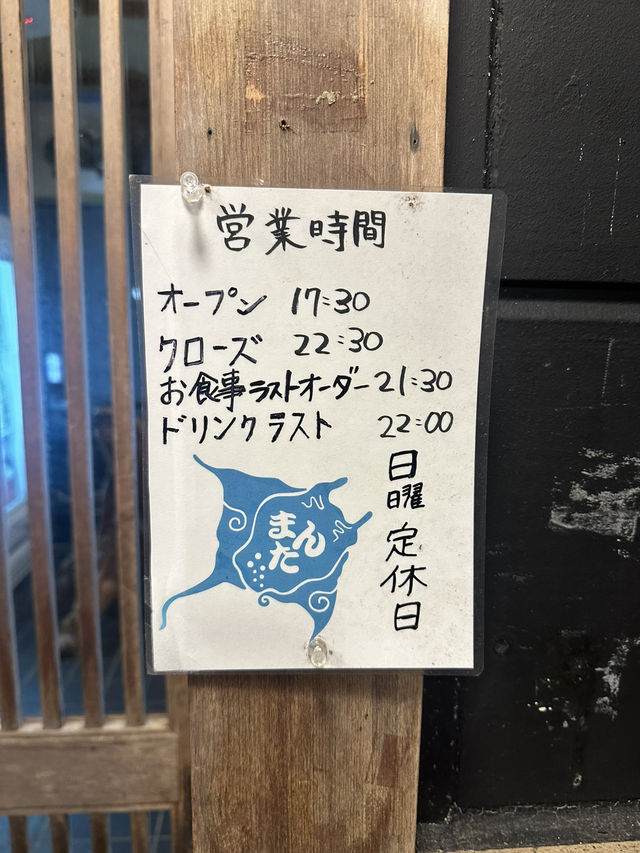 営業時間
オープン 17:30
クローズ 22:30
お食事ラストオーダー 21:30
ドリンクラスト 22:00
日曜定休日
まんた